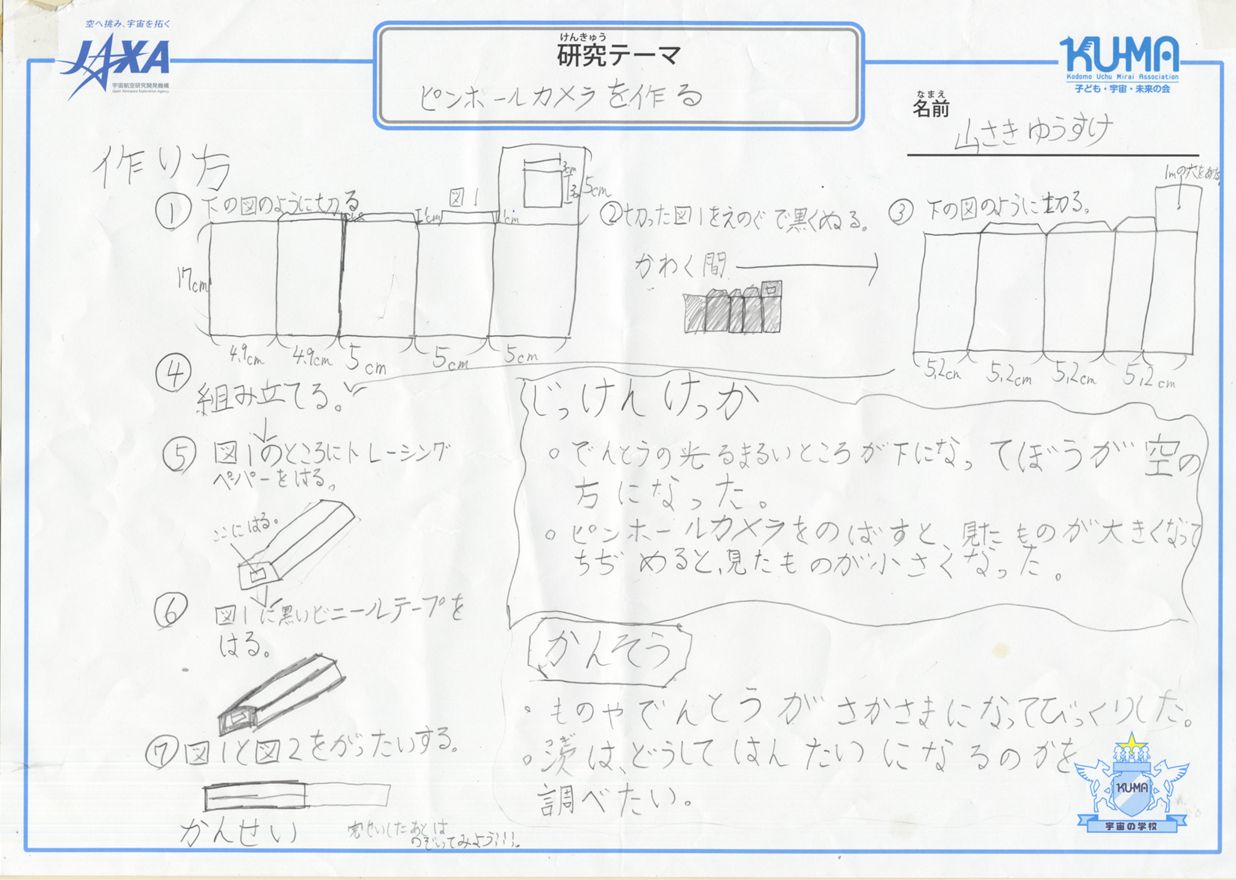 空へ挑み、宇宙を拓く
JAXA
宇宙航空研究開発機構
Japan Aerospace Exploration Agency
けんきゅう
研究テーマ
ピンホールカメラを作る
KU-MA
Kodomo Uchu Mirai Association
子ども・宇宙・未来の会
なまえ
名前
山さきゆうすけ
作り方
① 下の図のように切る
図1
3cm
3cm
5cm
1cm
1cm
17cm
4.9cm 4.9cm 5cm 5cm 5cm
② 切った図1をえのぐで黒くぬる。
かわく間
③ 下の図のように切る。
5.2cm 5.2cm 5.2cm 5.2cm
④ 組み立てる。
⑤ 図1のところにトレーシング
ペーパーをはる。
ここにはる。
⑥ 図1に黒いビニールテープを
はる。
⑦ 図1と図2をがったいする。
かんせい
のぞいてみよう!!!
じっけんけっか
○ でんとうの光るまるいところが下になってぼうが空の
方になった。
○ ピンホールカメラをのばすと、見たものが大きくなって
ちぢめると、見たものが小さくなった。
かんそう
・ものやでんとうがさかさまになってびっくりした。
は、どうしてはんたいになるのかを
調べたい。
KU-MA
宇宙の学校